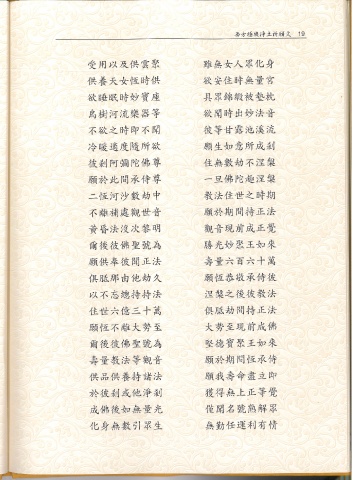 西方極樂淨土祈願文 19
受用以及供雲聚 雖無女人眾化身
供養天女恆時供 欲安住時無量宮
欲睡眠時妙寶座 具眾錦緞被墊枕
鳥樹河流樂器等 欲聞時出妙法音
不欲之時即不聞 彼等甘露池溪流
冷暖適度隨所欲 願生如意所成剎
彼剎阿彌陀佛尊 住無數劫不涅槃
願於此間承侍尊 一旦佛陀趣涅槃
二恆河沙數劫中 教法住世之時期
不離補處觀世音 願於期間持正法
黃昏法沒次黎明 觀音現前成正覺
爾後彼佛聖號為 勝光妙聚王如來
願供奉彼聞正法 壽量六百六十萬
俱胝那由他劫久 願恆恭敬承侍彼
以不忘總持持法 涅槃之後彼教法
住世六億三十萬 俱胝劫間持正法
願恆不離大勢至 大勢至現前成佛
爾後彼佛聖號為 堅德寶聚王如來
壽量教法等觀音 願於期間恆承侍
供品供養持諸法 願我壽命盡立即
於彼剎或他淨剎 獲得無上正等覺
成佛後如無量光 僅聞名號熟解眾
化身無數引眾生 無勤任運利有情